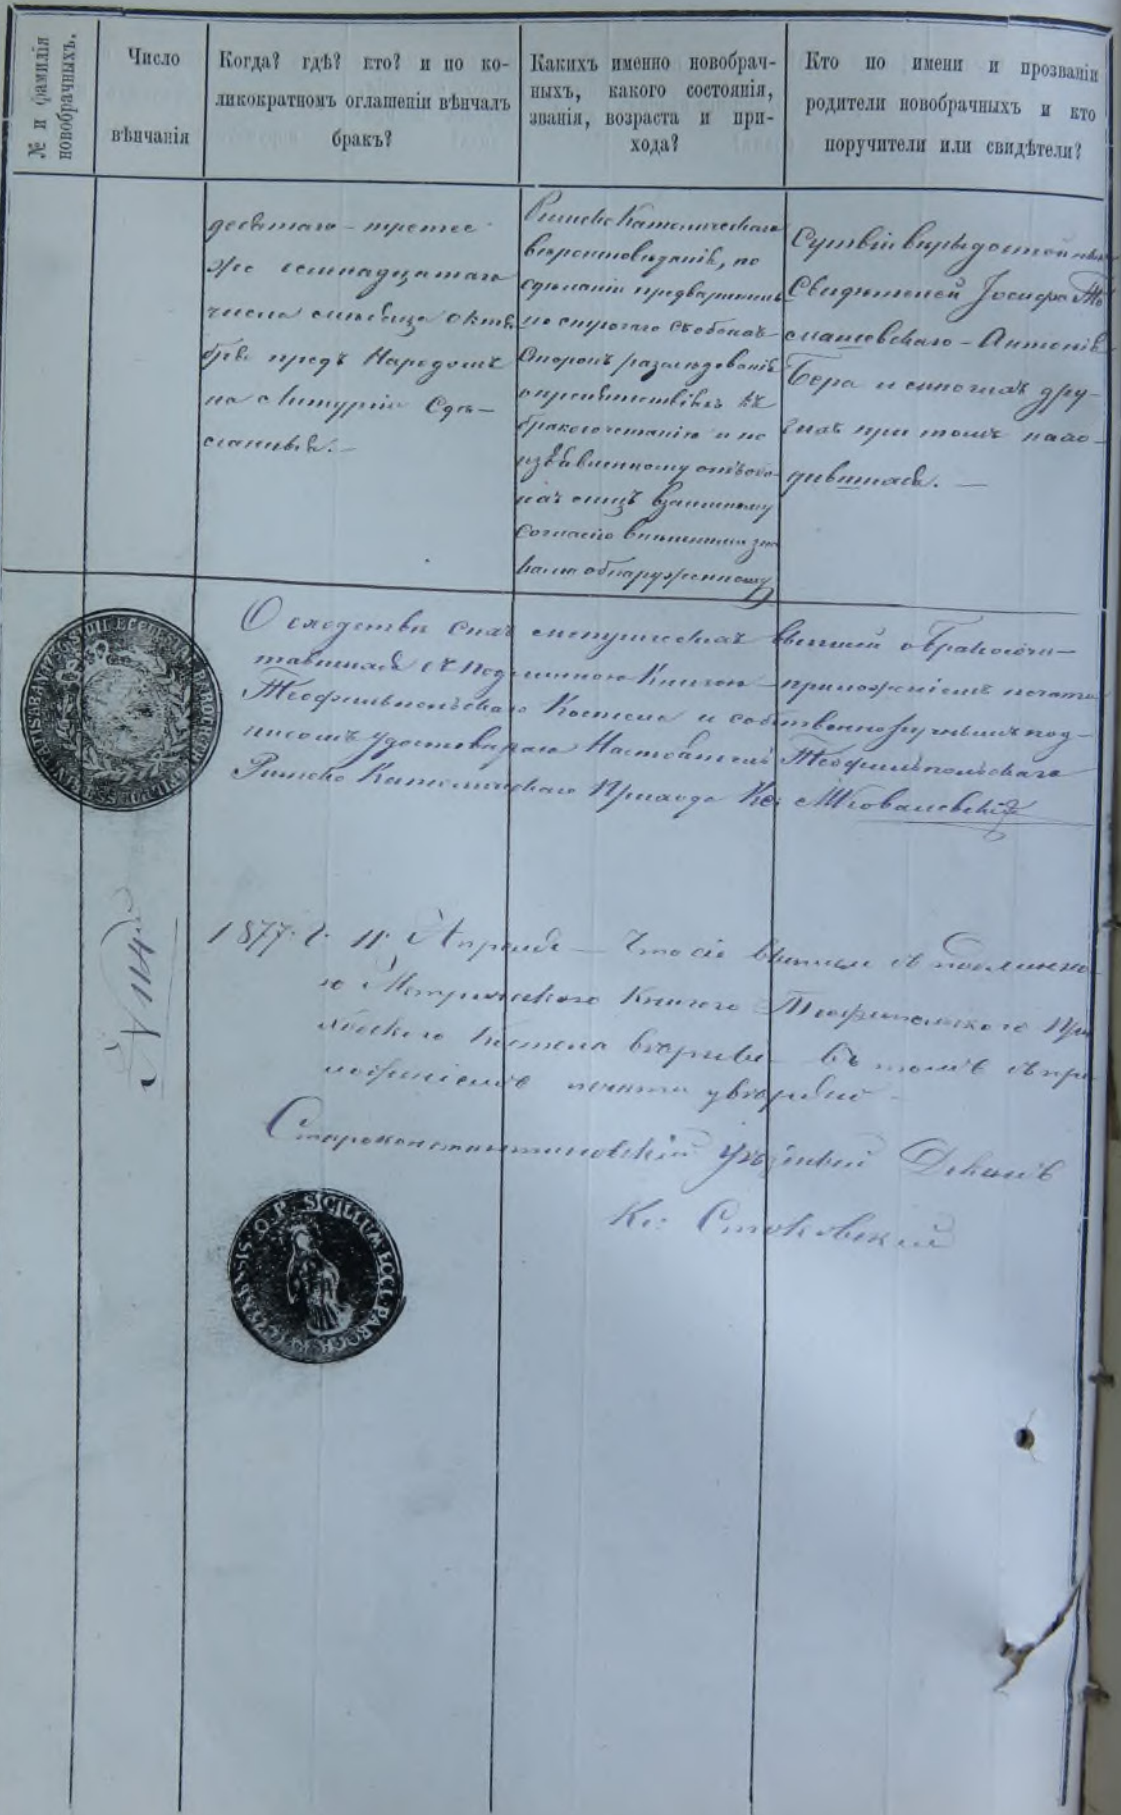 № и фамилія
новобрачныхъ.
Число
вѣнчанія
Когда? гдѣ? кто? и по ко-
ликократномъ оглашеніи вѣнчалъ
бракъ?
Какихъ именно новобрач-
ныхъ, какого состоянія,
званія, возраста и при-
хода?
Кто по имени и прозванію
родители новобрачныхъ и кто
поручители или свидѣтели?
десятаго – третее
же семнадцатаго
числа мѣсяца октя
бря предъ Народомъ
на Литургіи Сдѣ-
ланныя. –
Римско Католическаго
вѣроисповѣданія, по
сдѣланіи предварительн
но строгаго съ обоихъ
Сторонъ разслѣдованія
о препятствіяхъ къ
бракосочетанію и по
изъявленному отъ обо-
ихъ лицъ взаимному
Согласію внѣшними зна
ками обнаруженному
Сутвіи вѣрыдостойныхъ
Свидѣтелей Іосифа То
машевскаго – Антонія
Бера и иныхъ дру-
гихъ при томъ нахо-
дившихся. –
О сходствѣ сихъ метрическихъ выписей о бракосоче-
тавшихся съ подлинною Книгою – приложеніемъ печати
Теофильпольскаго Костела и собственноручнымъ под-
писомъ удостовѣряю Настоятель Теофильпольскаго
Римско Католическаго Прихода Кс:
№ 114
1877. г. 11. Апрѣля – Что сіе выписи съ подлинно
ю Метрическою Книгою Теофипольскаго При
ходскаго Костела вѣрны – въ томъ съ при
ложеніемъ печати увѣряю –
Староконстантиновскій Уѣздный Деканъ
Кс: Стоковскій
SIGILLUM ECCL: PAROCH: O. P.